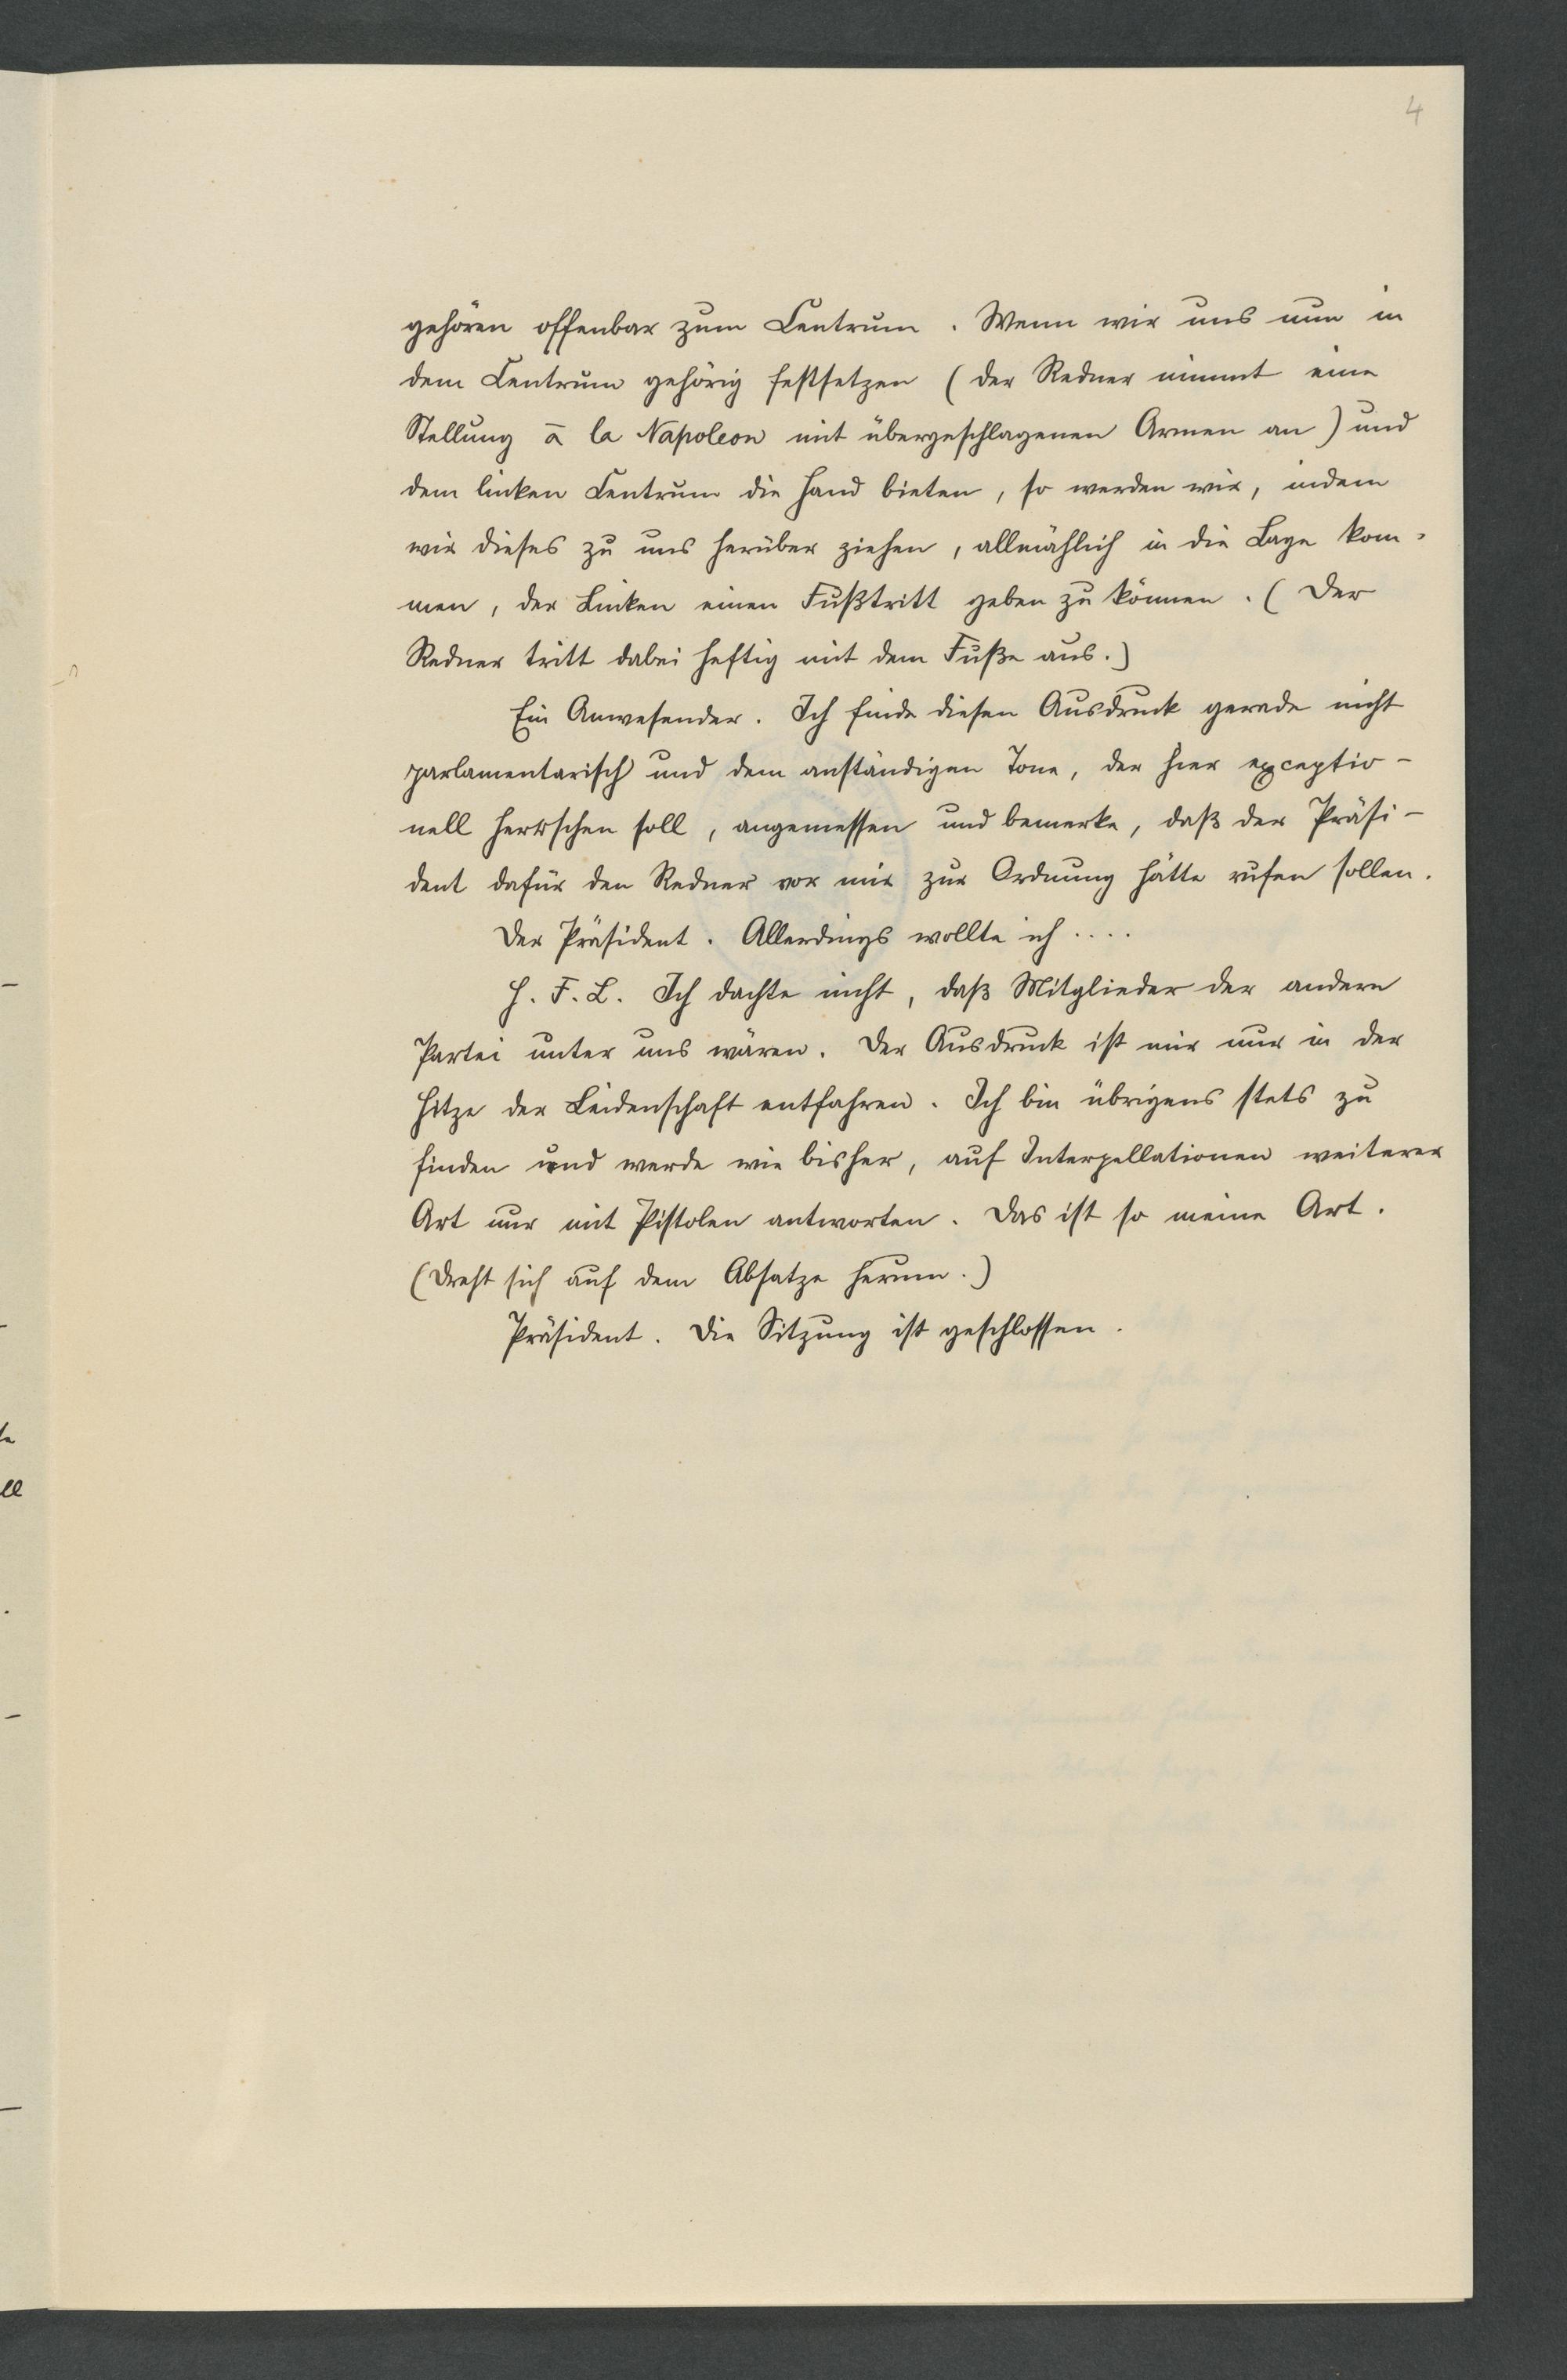 4
gehören offenbar zum Centrum. Wenn wir uns nun in
dem Centrum gehörig festsetzen (der Redner nimmt eine
Stellung à la Napoleon mit übergeschlagenen Armen an) und
dem linken Centrum die Hand bieten, so werden wir, indem
wir dieses zu uns herüber ziehen, allmählich in die Lage kom-
men, der Linken einen Fußtritt geben zu können. (Der
Redner tritt dabei heftig mit dem Fuße aus.)
Ein Anwesender. Ich finde diesen Ausdruck gerade nicht
parlamentarisch und dem anständigen Tone, der hier exceptio-
nell herrschen soll, angemessen und bemerke, daß der Präsi-
dent dafür den Redner vor mir zur Ordnung hätte rufen sollen.
Der Präsident. Allerdings wollte ich ....
H. F. L. Ich dachte nicht, daß Mitglieder der andern
Partei unter uns wären. Der Ausdruck ist mir nur in der
Hitze der Leidenschaft entfahren. Ich bin übrigens stets zu
finden und werde wie bisher, auf Interpellationen weiterer
Art nur mit Pistolen antworten. Das ist so meine Art.
(Dreht sich auf dem Absatze herum.)
Präsident. Die Sitzung ist geschlossen.